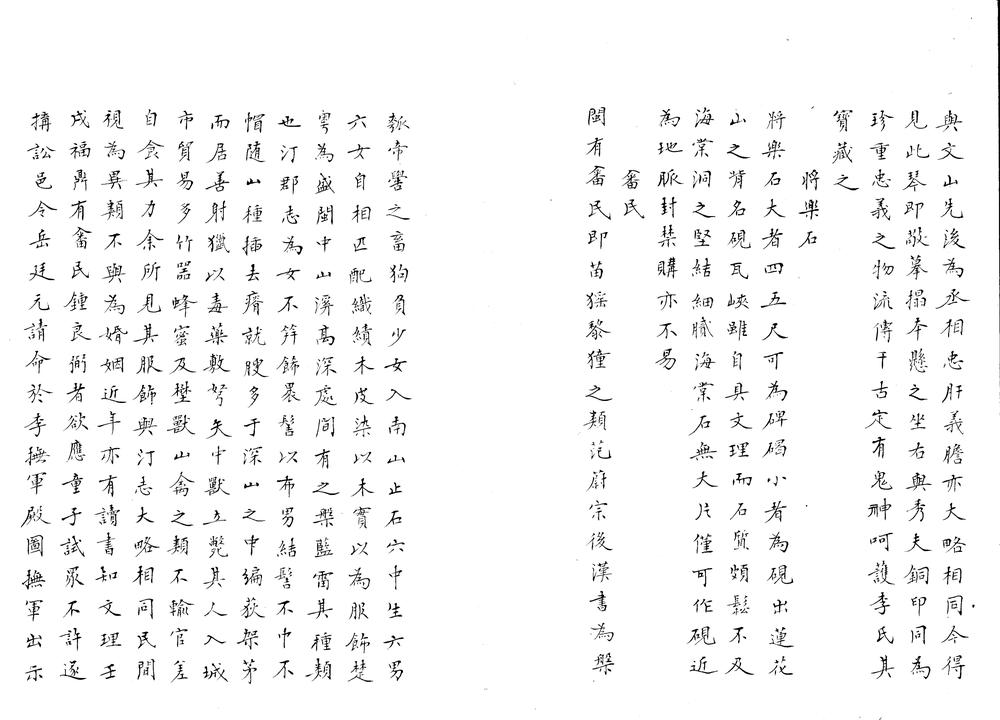 與文山先後為丞相忠肝義膽亦大略相同今得
見此琴即敬摹搨本懸之坐右與秀夫銅印同為
珍重忠義之物流傳千古定有鬼神呵護李氏其
寶藏之
將樂石
將樂石大者四五尺可為碑碣小者為硯出蓮花
山之背名硯瓦峽雖自具文理而石質頗鬆不及
海棠洞之堅結細膩海棠石無大片僅可作硯近
為地脈封禁購亦不易
畬民
閩有畬民即苗猺黎獞之類范蔚宗後漢書為槃
瓠帝嚳之畜狗負少女入南山止石穴中生六男
六女自相匹配織績木皮染以木實以為服飾楚
粵為盛閩中山溪高深處間有之槃藍雷其種類
也汀郡志為女不笄飾裠髻以布男結髻不巾不
帽隨山種插去瘠就腴多于深山之中編荻架茅
而居善射獵以毒藥敷弩矢中獸立斃其人入城
市貿易多竹器蜂蜜及野獸山禽之類不輸官差
自食其力余所見其服飾與汀志大略相同民間
視為異類不與為婚姻近年亦有讀書知文理壬
戌福鼎有畬民鍾良弼者欲應童子試眾不許逐
搆訟邑令岳廷元請命於李撫軍殿圖撫軍出示